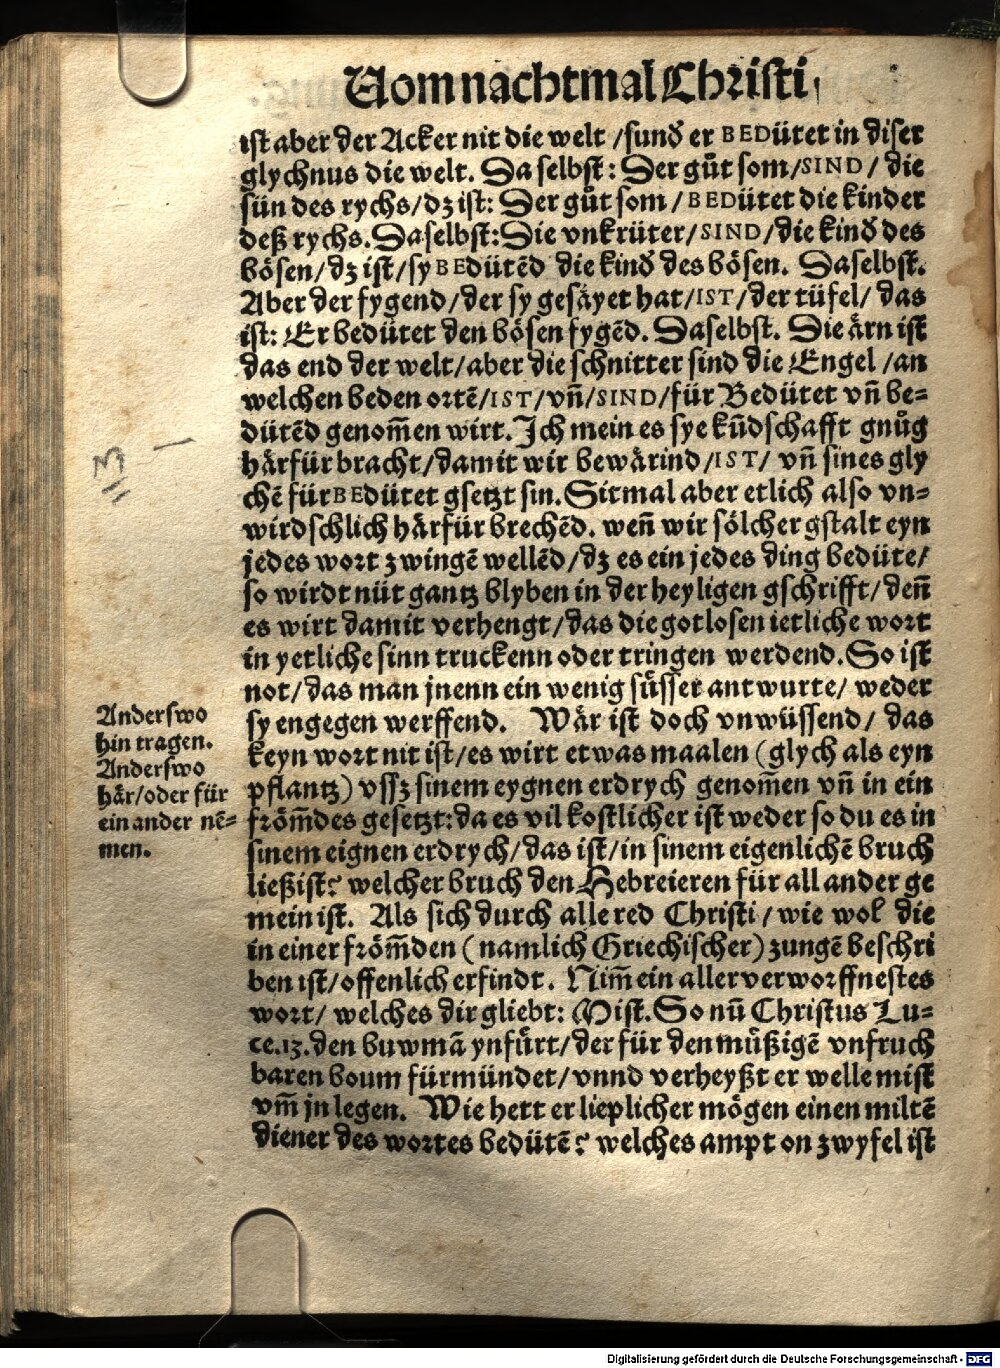 Vom nachtmal Christi,
ist aber der Acker nit die welt / sund̃ er BEDütet in diser
glychnus die welt. Daselbst: Der gůt som/SIND/ die
sün des rychs/dz ist: Der gůt som / BEDütet die kinder
deß rychs. Daselbst: Die vnkrüter/SIND/die kind̃ des
bösen/dz ist/sy BEdütẽd die kind̃ des bösen. Daselbst.
Aber der fygend/der sy gesäyet hat/IST/der tüfel/ das
ist: Er bedütet den bösen fygẽd. Daselbst. Die ärn ist
das end der welt/aber die schnitter sind die Engel /an
welchen beden ortẽ/IST/vñ/SIND/für Bedütet vñ be-
dütẽd genom̃en wirt. Ich mein es sye kũdschafft gnůg
härfür bracht/damit wir bewärind/IST/ vñ sines gly
chẽ für BEdütet gsetzt sin. Sitmal aber etlich also vn-
wirdschlich härfür brechẽd. weñ wir sölcher gstalt eyn
jedes wort zwingẽ wellẽd/dz es ein jedes ding bedüte/
so wirdt nüt gantz blyben in der heyligen gschrifft/deñ
es wirt damit verhengt/das die gotlosen ietliche wort
in yetliche sinn truckenn oder tringen werdend. So ist
not/das man jnenn ein wenig süsser antwurte/ weder
sy engegen werffend. Wär ist doch vnwüssend/ das
keyn wort nit ist/es wirt etwas maalen (glych als eyn
pflantz) vssz sinem eygnen erdrych genom̃en vñ in ein
fröm̃des gesetzt: da es vil kostlicher ist weder so du es in
sinem eignen erdrych/das ist/in sinem eigenlichẽ bruch
ließist? welcher bruch den Hebreieren für all ander ge
mein ist. Als sich durch alle red Christi/wie wol die
in einer fröm̃den (namlich Griechischer) zungẽ beschri
ben ist/offenlich erfindt. Nim̃ ein aller verworffnestes
wort/ welches dir gliebt: Mist. So nũ Christus Lu-
ce.13.den buwmã ynfürt/der für den müßigẽ vnfruch
baren boum fürmündet/vnnd verheyßt er welle mist
vm̃ jn legen. Wie hett er lieplicher mögen einen miltẽ
diener des wortes bedütẽ? welches ampt on zwyfel ist
Anderswo
hin tragen.
Anderswo
här/oder für
ein ander nẽ-
men.
113
Digitalisierung gefördert durch die Deutsche Forschungsgemeinschaft - DFG